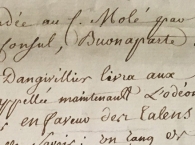 ndée au f. Molé par
Consul, Buonaparte
Dangiviller livra aux
appellée maintenant l'Odéon
s en faveur des talens
Savoir: en rang